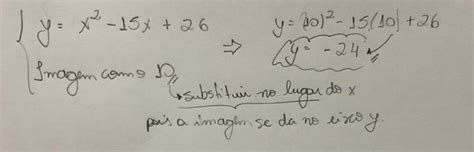 y = x² - 15x + 26 ⇒ y = (10)² - 15(10) + 26
y = -24
Imagem como 10
substituir no lugar do x
pois a imagem se da no eixo y.